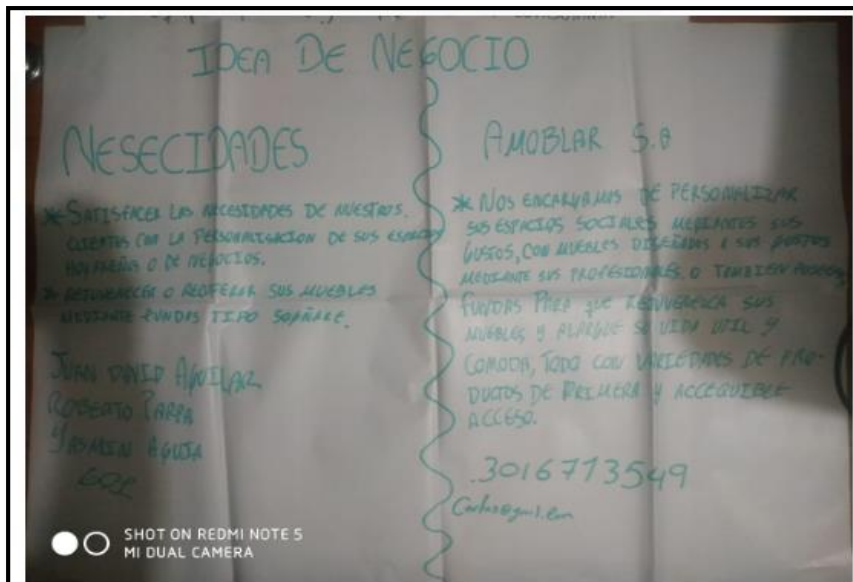 IDEA DE NEGOCIO
NESECIDADES
* SATISFACER LAS NECESIDADES DE NUESTROS.
CLIENTES CON LA PERSONALISACION DE SUS ESPACIOS
O DE NEGOCIOS.
* REJUVENECER O SUS MUEBLES
MEDIANTE FUNDAS TIPO
JUAN DAVID AGUILAR
ROBERTO PARRA
YASMIN
AMOBLAR S.A
* NOS ENCARGAMOS DE PERSONALIZAR
SUS ESPACIOS SOCIALES MEDIANTES SUS
GUSTOS, CON MUEBLES DISEÑADOS A SUS GUSTOS
MEDIANTE SUS PROFESIONALES O TAMBIEN
FUNDAS PARA QUE REJUVENEZCA SUS
MUEBLES Y ALARGUE SU VIDA UTIL Y
COMODA, TODO CON VARIEDADES DE PRO-
DUCTOS DE PRIMERA Y ACCEQUIBLE
ACCESO.
.3016773549
SHOT ON REDMI NOTE 5
MI DUAL CAMERA